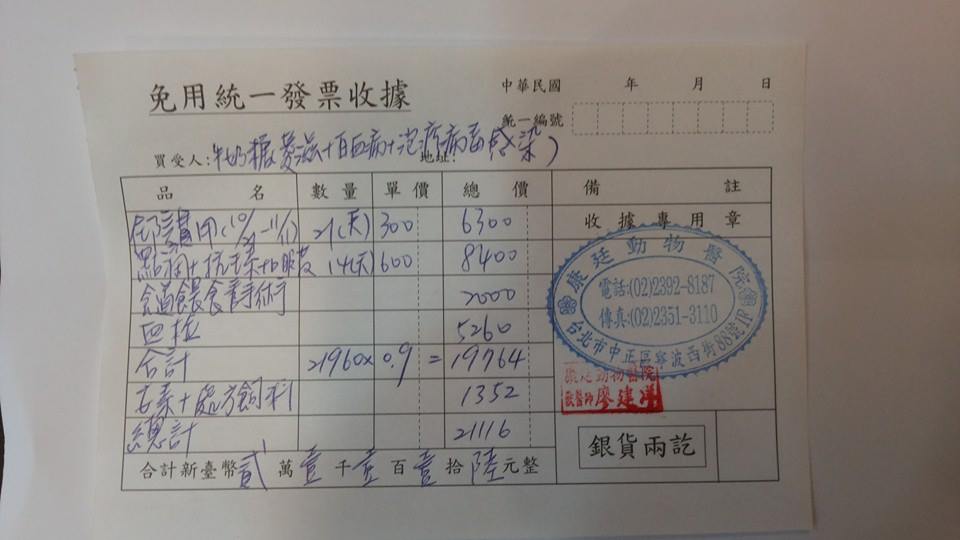 免用統一發票收據
中華民國 年 月 日
統一編號
買受人:牛奶糖 地址: +白血病+泡疹病毒感染)
品名 數量 單價 總價 備註
住院費用(10/21-11/11) 21(天) 300 6300 收據專用章
點滴+抗生素+口服 14(天) 600 8400
食道餵食 手術 2000
血檢 5260
合計 21960×0.9=19764
+處方飼料 1352
總計 21116
合計新臺幣貳萬壹千壹百壹拾陸元整
康廷動物醫院
電話:(02)2392-8187
傳真:(02)2351-3110
台北市中正區寧波西街88號1F
康廷動物醫院
獸醫師廖建
銀貨兩訖